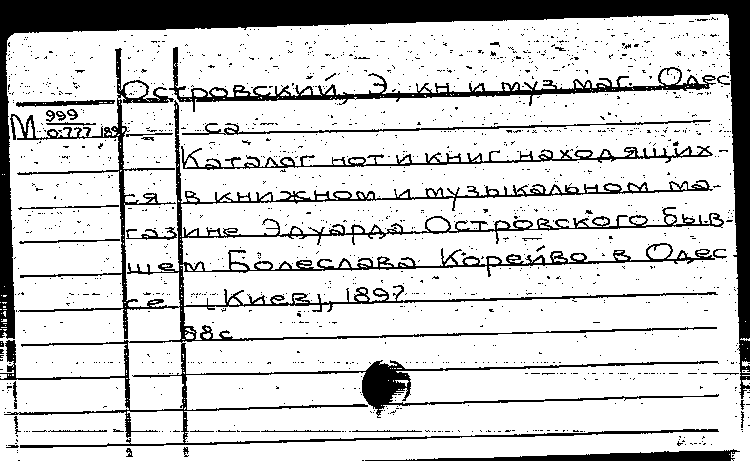 Островский, Э, кн. и муз. маг. Одес
М 999
0.777 1897
са
Каталог нот и книг находящих-
ся в книжном и музыкальном ма-
газине Эдуарда Островского быв-
шем Болеслава Корейво в Одес-
се [Киев], 1897
88 с